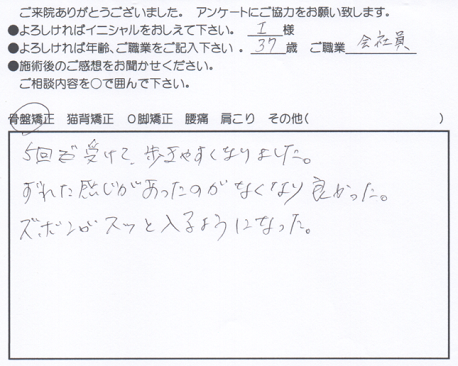 ご来院ありがとうございました。 アンケートにご協力をお願い致します。
●よろしければイニシャルをおしえて下さい。 I 様
●よろしければ年齢、ご職業をご記入下さい 。 37 歳 ご職業 会社員
●施術後のご感想をお聞かせください。
ご相談内容を〇で囲んで下さい。
骨盤矯正 猫背矯正 O脚矯正 腰痛 肩こり その他( )
5回ぐ受けて、歩きやすくなりました。
ずれた感じがあったのがなくなり良かった。
ズボンがスッと入るようになった。